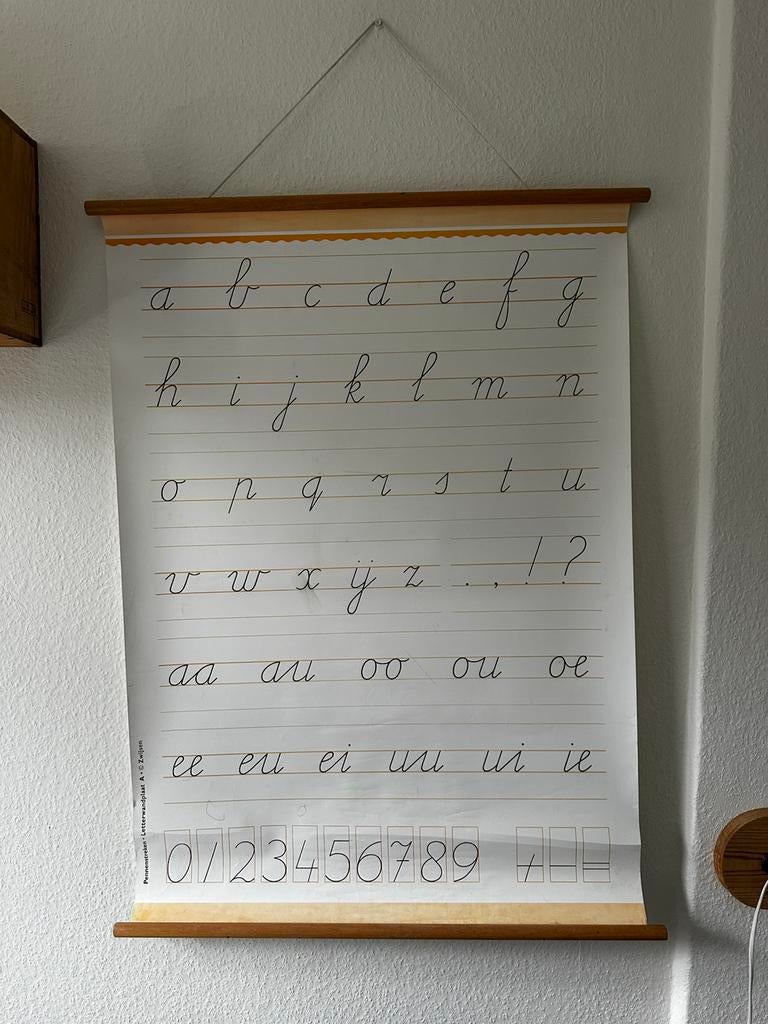 a b c d e f g
h i j k l m n
o p q r s t u
v w x ij z . , ! ?
aa au oo ou oe
ee eu ei uu ui ie
0 1 2 3 4 5 6 7 8 9 + - =
Pennenstreken • Letterwandplaat A • © Zwijsen